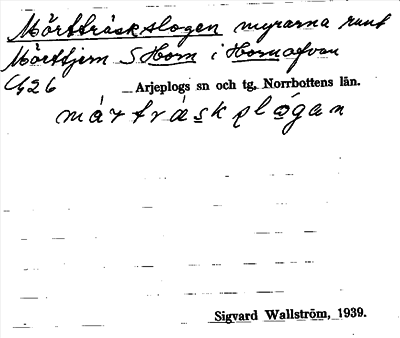 Mörtträskslogen myrarna runt
Mörttjern S Horn i Hornavan
Arjeplogs sn och tg, Norrbottens län.
Sigvard Wallström, 1939.